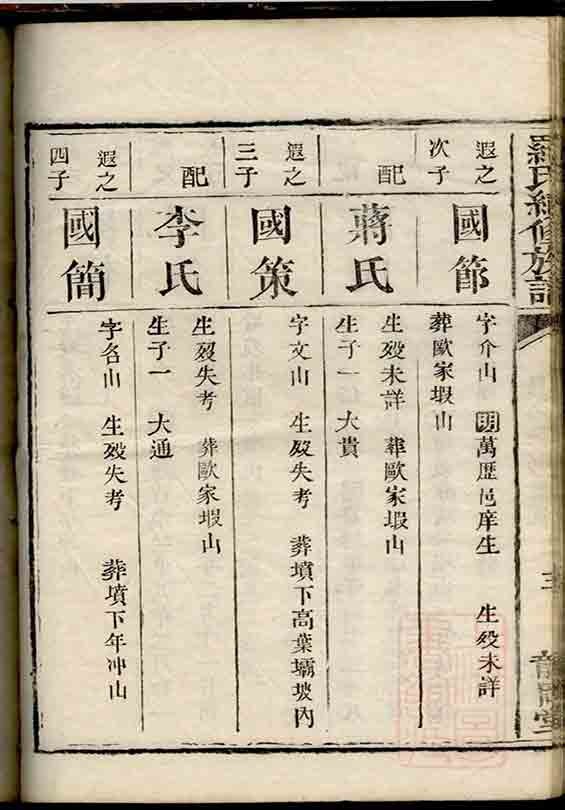 羅氏續修族譜
三
堂
遐之
次子
國節
字介山 明萬歷邑庠生 生歿未詳
葬歐家堨山
配
蔣氏
生歿未詳 葬歐家堨山
生子一 大貴
遐之
三子
國策
字文山 生歿失考 葬墳下高葉壩坡內
配
李氏
生歿失考 葬歐家堨山
生子一 大通
遐之
四子
國簡
字名山 生歿失考 葬墳下年冲山